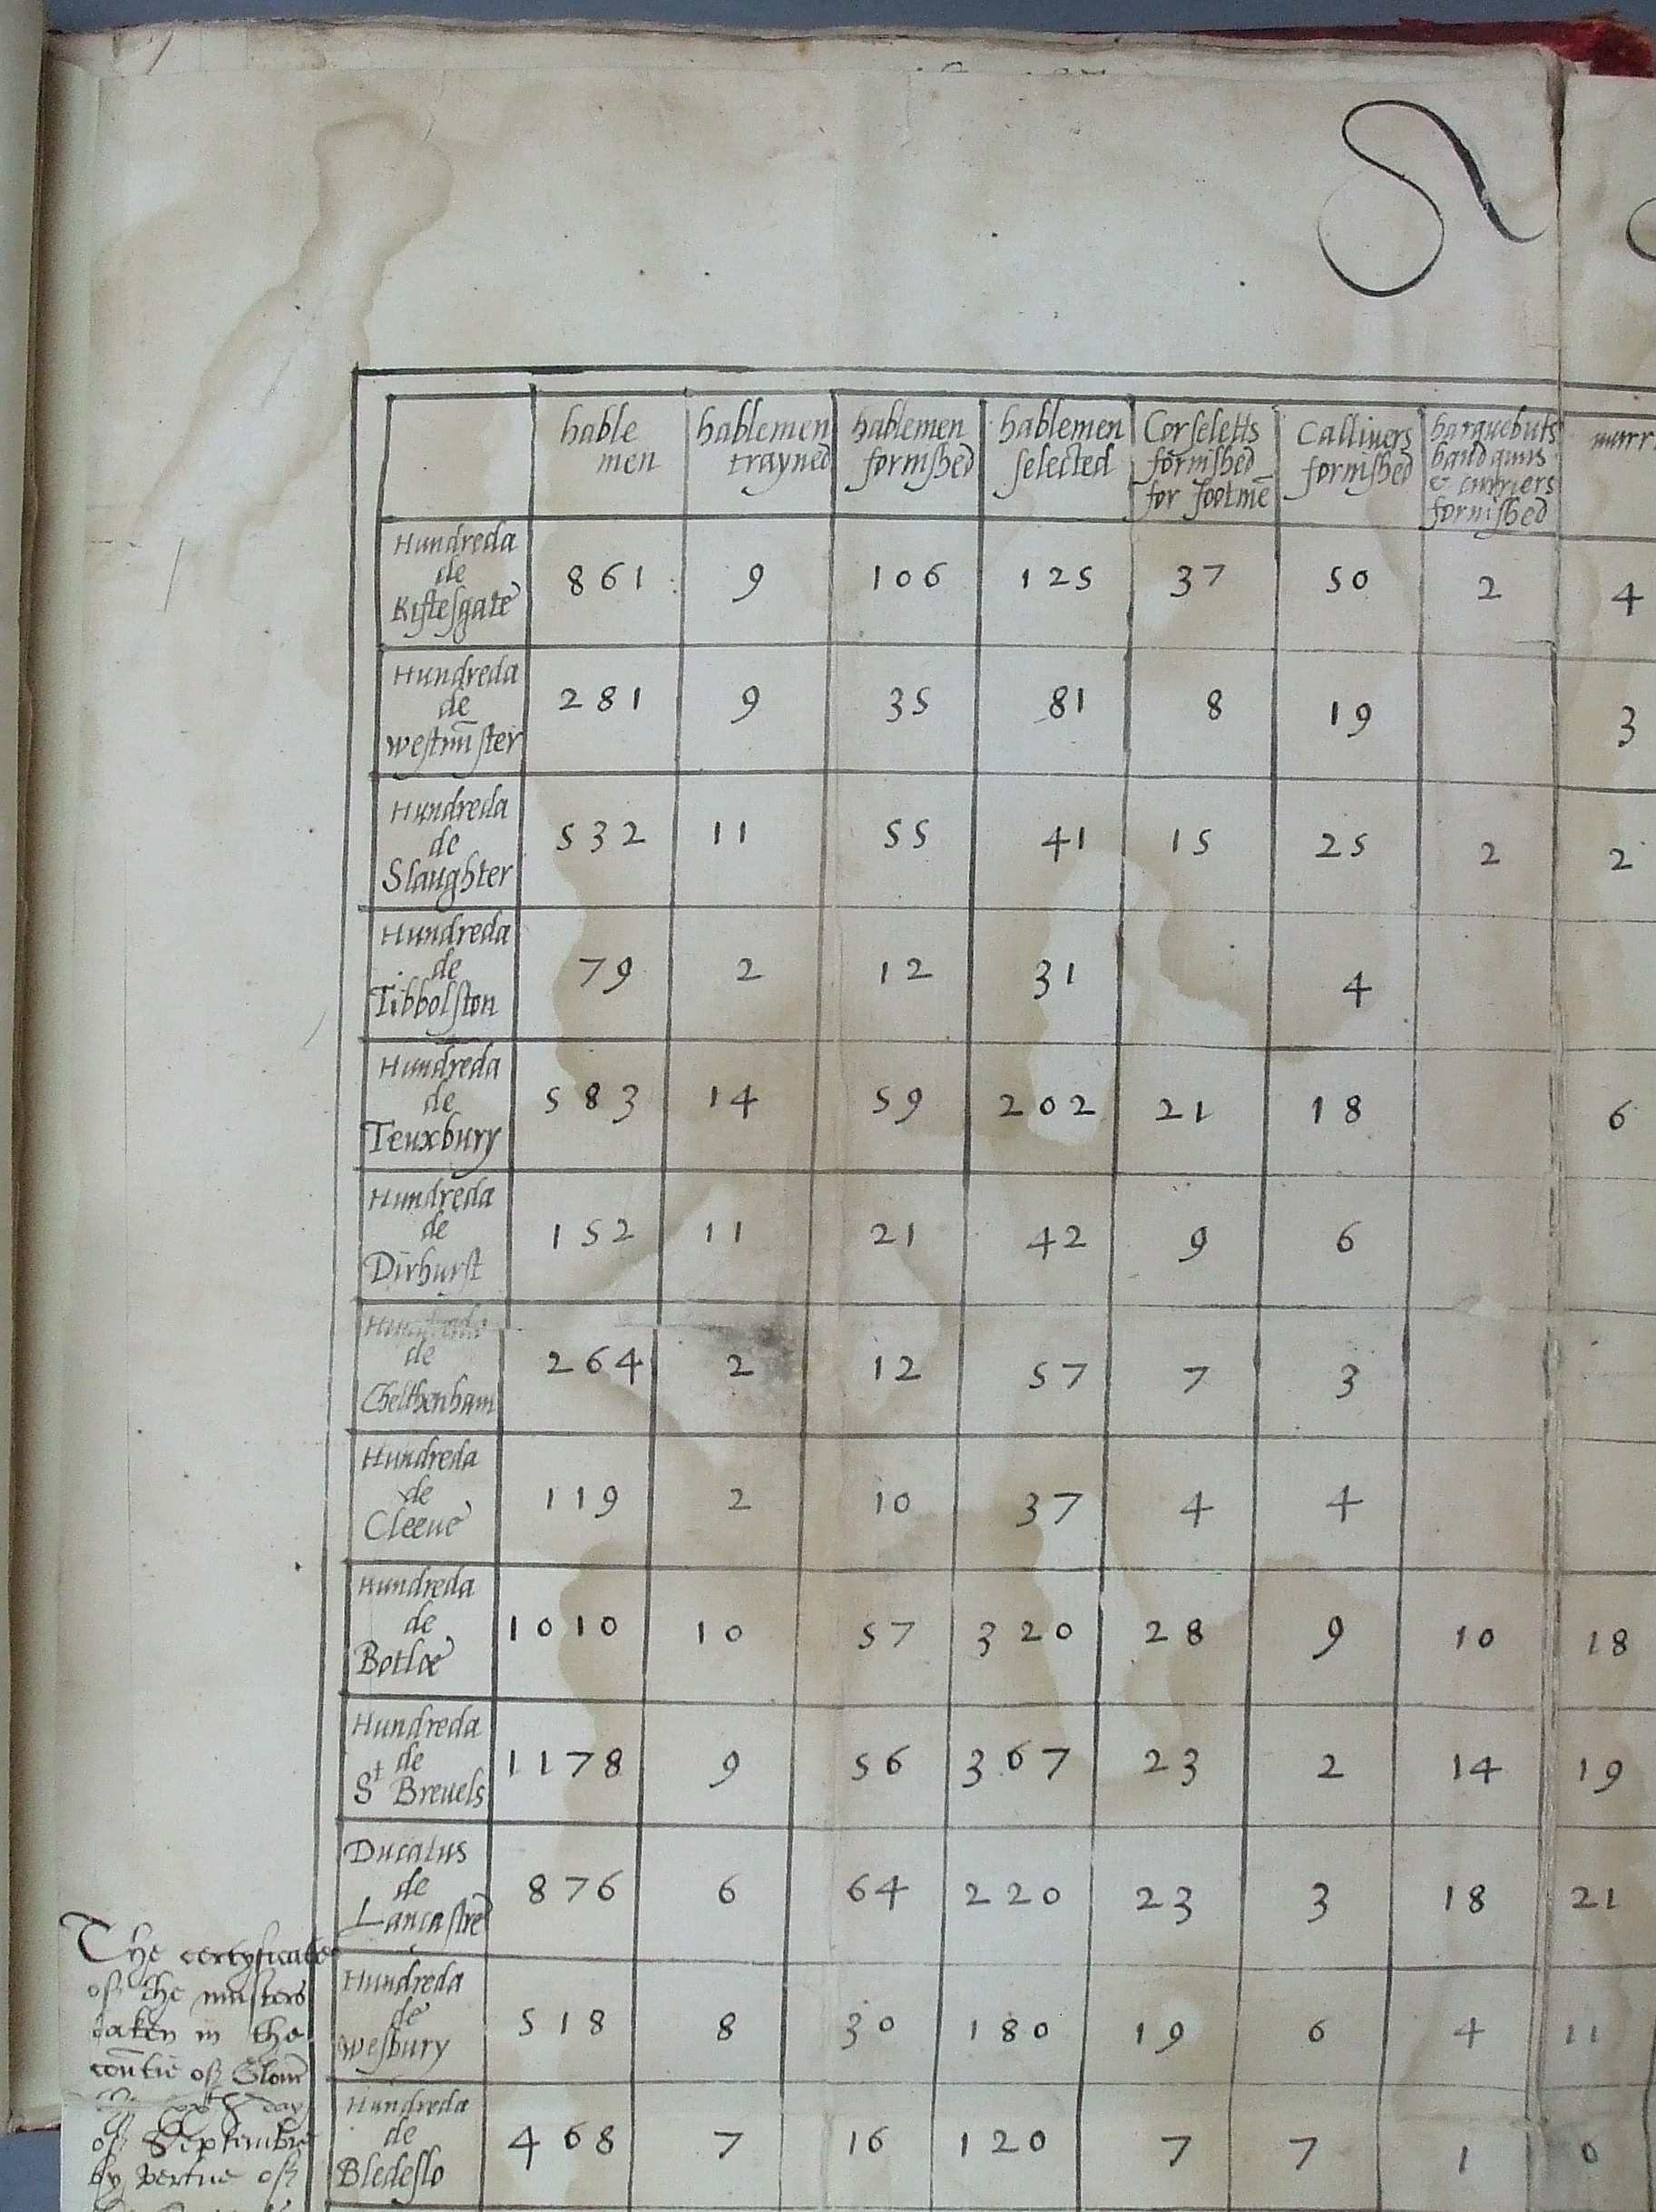 hable
men
hablemen
trayned
hablemen
fornished
hablemen
selected
Corseletts
fornished
for footmē
Callivers
fornished
harquebuts
handguns
& curriers
fornished
murr
Hundreda
de
Kiftesgate
861 9 106 125 37 50 2 4
Hundreda
de
westm̄ster
281 9 35 81 8 19 3
Hundreda
de
Slaughter
532 11 55 41 15 25 2 2
Hundreda
de
Tibbolston
79 2 12 31 4
Hundreda
de
Teuxbury
583 14 59 202 21 18 6
Hundreda
de
Dirhurst
152 11 21 42 9 6
Hundreda
de
Chelthenham
264 2 12 57 7 3
Hundreda
de
Cleeue
119 2 10 37 4 4
Hundreda
de
Botloe
1010 10 57 320 28 9 10 18
Hundreda
de
St Breuels
1178 9 56 367 23 2 14 19
Ducatus
de
Lancastre
876 6 64 220 23 3 18 21
Hundreda
de
wesbury
518 8 30 180 19 6 4 11
Hundreda
de
Bledeslo
468 7 16 120 7 7 1 0
The certyficate
of the musters
taken in the
coūtie of Glouc
day
of Septembre
by vertue of